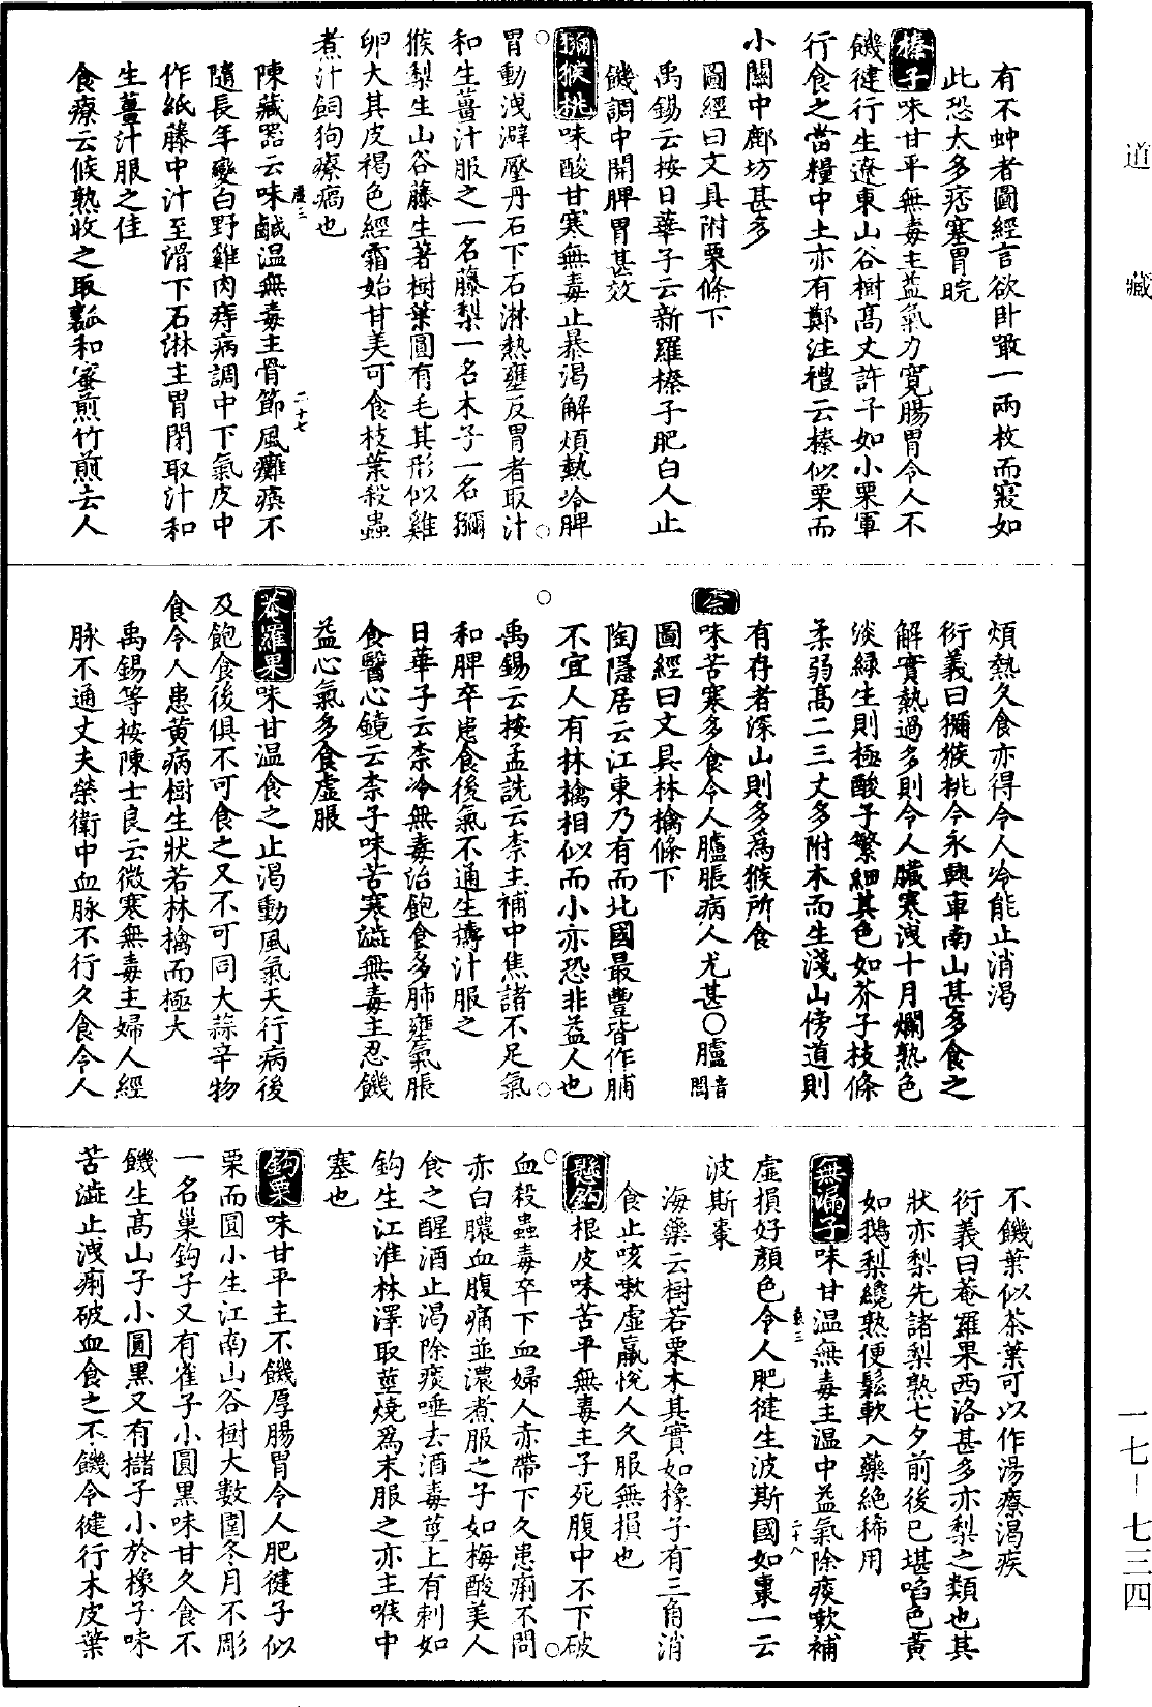 道藏
有不蚛者圖經言欲卧㗖一兩枚而寢如
此恐太多痞塞胃脘
榛子味甘平無毒主益氣力寬腸胃令人不
饑徤行生遼東山谷樹髙丈許子如小栗軍
行食之當糧中土亦有鄭注禮云榛似栗而
小關中鄜坊甚多
圖經曰文具附栗條下
禹錫云按日華子云新羅榛子肥白人止
饑調中開脾胃甚效
獼猴桃味酸甘寒無毒止暴渴解煩熱冷脾
胃動洩澼壓丹石下石淋熱壅反胃者取汁
和生薑汁服之一名藤梨一名木子一名獼
猴梨生山谷藤生著樹葉圓有毛其形似雞
卵大其皮褐色經霜始甘美可食枝葉殺蟲
煮汁飼狗療㾦也
陳藏器云味鹹溫無毒主骨節風癱瘓不
隨長年變白野雞肉痔病調中下氣皮中
作紙藤中汁至滑下石淋主胃閉取汁和
生薑汁服之佳
食療云候熟收之取瓤和蜜煎竹煎去人
二十七
煩熱久食亦得令人冷能止消渴
衍義曰獼猴桃今永興軍南山甚多食之
解實熱過多則令人臟寒洩十月爛熟色
淡緑生則極酸子繁細其色如芥子枝條
柔弱高二三丈多附木而生淺山傍道則
有存者深山則多為猴所食
味苦寒多食令人臚脹病人尤甚○臚音閭
圖經曰文具林檎條下
陶隱居云江東乃有而北國最豐皆作脯
不宜人有林檎相似而小亦恐非益人也
禹錫云按孟詵云柰主補中焦諸不足氣
和脾卒患食後氣不通生擣汁服之
日華子云柰冷無毒治飽食多肺壅氣脹
食醫心鏡云柰子味苦寒澁無毒主忍饑
益心氣多食虛脹
菴羅果味甘溫食之止渴動風氣天行病後
及飽食後俱不可食之又不可同大蒜辛物
食令人患黄病樹生狀若林檎而極大
禹錫等按陳士良云微寒無毒主婦人經
脉不通丈夫榮衛中血脉不行久食令人
不饑葉似茶葉可以作湯療渴疾
衍義曰菴羅果西洛甚多亦梨之類也其
狀亦梨先諸梨熟七夕前後已堪啗色黄
如鵝梨纔熟便鬆軟入藥絶稀用
無漏子味甘溫無毒主溫中益氣除痰嗽補
虛損好顔色令人肥徤生波斯國如棗一云
波斯棗
二十八
海藥云樹若栗木其實如橡子有三角消
食止咳嗽虛羸悅人久服無損也
懸鈎根皮味苦平無毒主子死腹中不下破
血殺蟲毒卒下血婦人赤帶下久患痢不問
赤白膿血腹痛並濃煮服之子如梅酸美人
食之醒酒止渴除痰唾去酒毒莖上有刺如
鈎生江淮林澤取莖燒為末服之亦主喉中
塞也
鈎栗味甘平主不饑厚腸胃令人肥徤子似
栗而圓小生江南山谷樹大數圍冬月不彫
一名巢鈎子又有雀子小圓黑味甘久食不
饑生髙山子小圓黒又有櫧子小於橡子味
苦澁止洩痢破血食之不饑令徤行木皮葉
一七－七三四